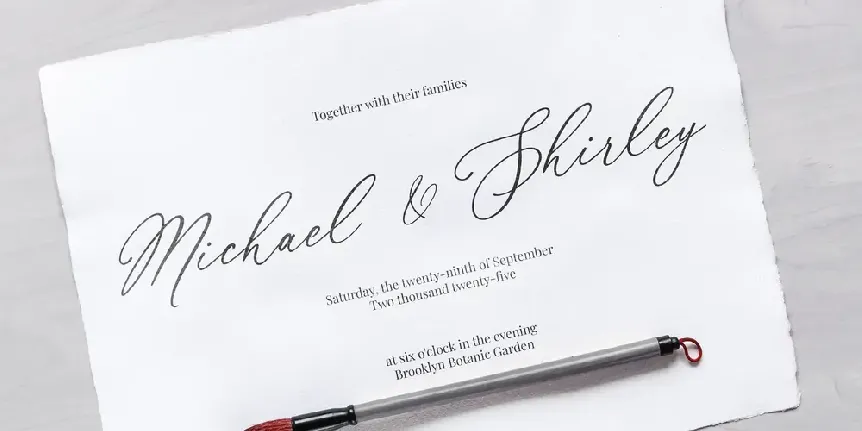 Together with their families
Michael & Shirley
Saturday, the twenty-ninth of September
Two thousand twenty-five
at six o'clock in the evening
Brooklyn Botanic Garden